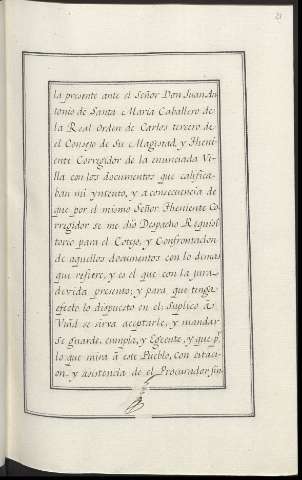 la presente ante el Señor Don Juan An
tonio de Santa Maria Caballero de
la Real orden de Carlos tercero de
el Consejo de Su Magistad, y Theni
ente Corregidor de la enunciada Vi-
lla con los documentos que califica-
ban mi yntento, y a consecuencia de
que por el mismo Señor Theniente Co
rregidor se me dio Despacho Requisi
torio para el Cotejo, y Confrontacion
de aquellos documentos con lo demas
que refiere, y es el que con la jura-
devida presento: y para que tenga
efecto lo dispuesto en el: Suplico a
Vmd se sirva aceptarle, y mandar
se guarde, cumpla, y Egecute, y que p.
lo que mira á este Pueblo, con citaci-
on, y asistencia de el Procurador sin